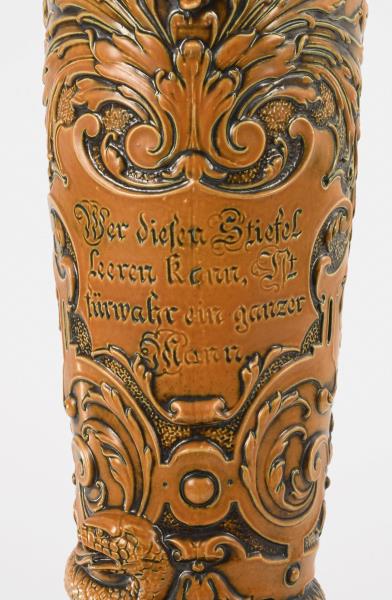 Wer diesen Stiefel
leeren kann, Ist
fürwahr ein ganzer
Mann.